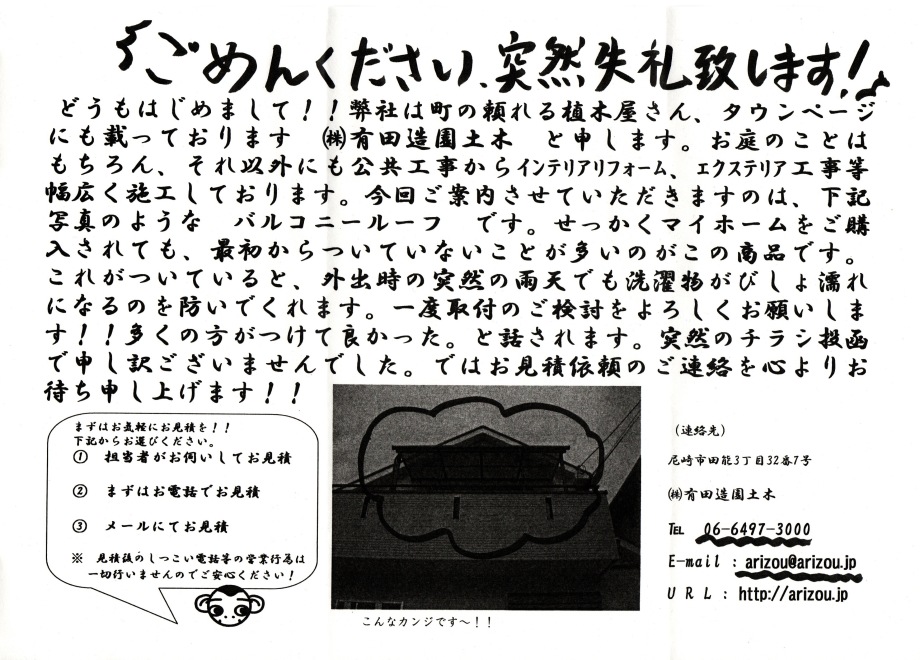 ごめんください、突然失礼致します!
どうもはじめまして!!弊社は町の頼れる植木屋さん、タウンページ
にも載っております ㈱有田造園土木 と申します。お庭のことは
もちろん、それ以外にも公共工事からインテリアリフォーム、エクステリア工事等
幅広く施工しております。今回ご案内させていただきますのは、下記
写真のような バルコニールーフ です。せっかくマイホームをご購
入されても、最初からついていないことが多いのがこの商品です。
これがついていると、外出時の突然の雨天でも洗濯物がびしょ濡れ
になるのを防いでくれます。一度取付のご検討をよろしくお願いしま
す!!多くの方がつけて良かった。と話されます。突然のチラシ投函
で申し訳ございませんでした。ではお見積依頼のご連絡を心よりお
待ち申し上げます!!
まずはお気軽にお見積を!!
下記からお選びください。
① 担当者がお伺いしてお見積
② まずはお電話でお見積
③ メールにてお見積
※ 見積後のしつこい電話等の営業行為は
一切行いませんのでご安心ください!
こんなカンジです~!!
(連絡先)
尼崎市田能3丁目32番7号
㈱有田造園土木
℡ 06-6497-3000
E-mail:arizou@arizou.jp
URL:http://arizou.jp